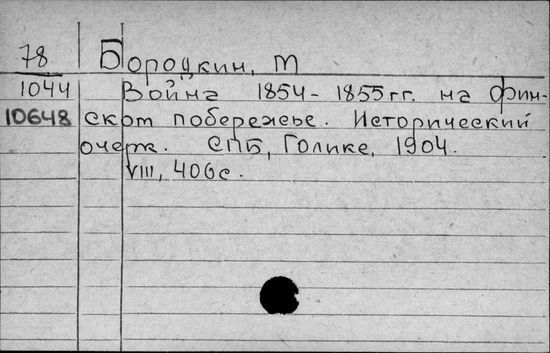 78 Бородкин, М
1044 Война 1854-1855 гг. на фин-
10648 ском побережье. Исторический
очерк. СПБ, Голике, 1904.
VIII, 406 с.